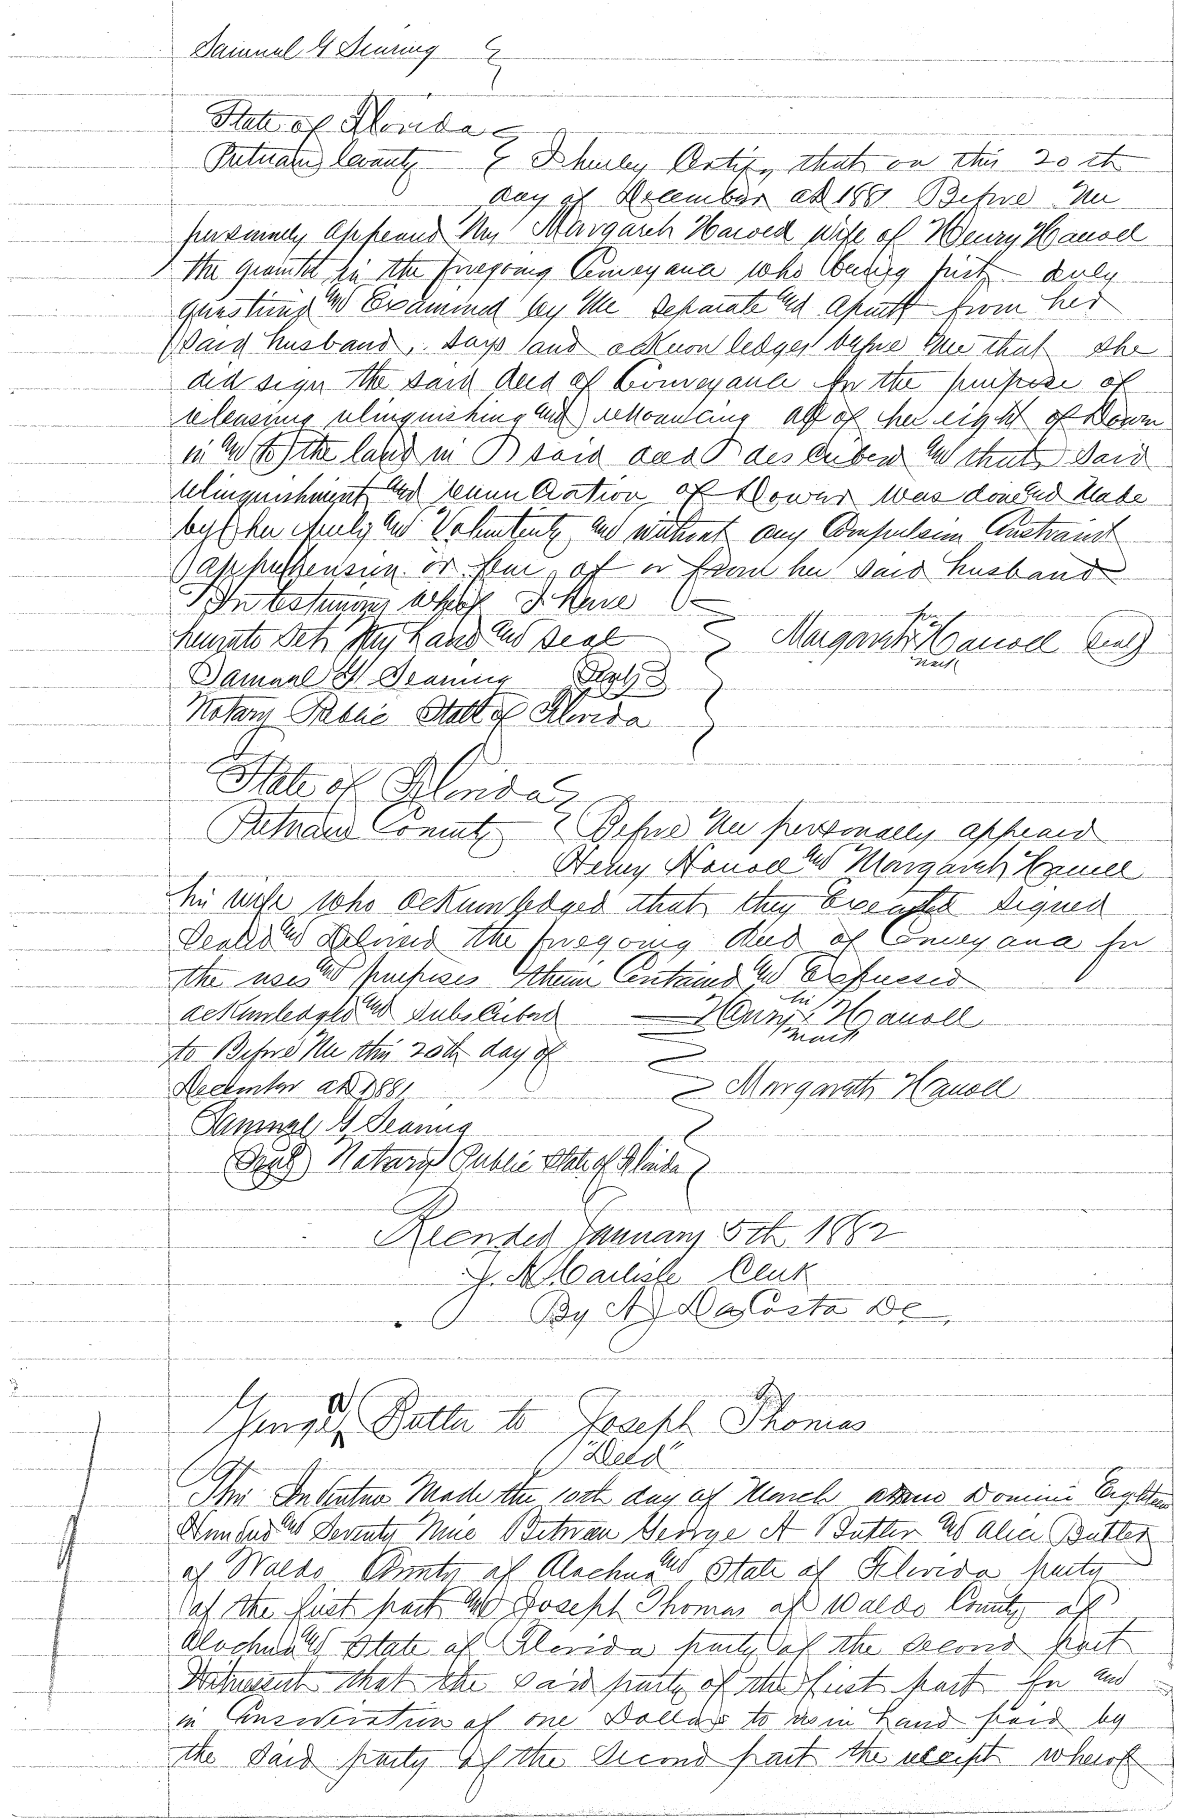 Samuel G Searing
State of Florida
Putnam County I hereby Certify that on this 20th
day of December AD 1881 Before Me
personally appeared Mrs Margareth wife of Henry
the grantor in the foregoing Conveyance who being first duly
questioned and Examined by Me separate and apart from her
said husband, says and acknowledges before Me that she
did sign the said deed of Conveyance for the purpose of
releasing relinquishing and renouncing all of her right of Dower
in and to the land in said deed described and that said
relinquishment and renunciation of Dower was done and Made
by her freely and Voluntarily and without any Compulsion Constraint
apprehension or fear of or from her said husband
In testimony whereof I have
hereunto Set My hand and Seal Margareth her mark (Seal)
Samuel G Searing (Seal)
Notary Public State of Florida
State of Florida
Putnam County Before Me personally appeared
Henry and Margareth
his wife who acknowledged that they Executed Signed
Sealed and delivered the foregoing deed of Conveyance for
the uses and purposes therein Contained and Expressed
acknowledged and subscribed Henry his mark
to Before Me this 20th day of
December AD 1881 Margareth
Samuel G Searing
(Seal) Notary Public State of Florida
Recorded January 5th 1882
J. A. Carlisle Clerk
By A J DaCosta DC
George A Butler to Joseph Thomas
"Deed"
This Indenture Made the 10th day of March anno Domini Eighteen
Hundred and Seventy Nine Between George A Butler and Alice Butler
of Waldo County of Alachua and State of Florida party
of the first part and Joseph Thomas of Waldo County of
Alachua and State of Florida party of the second part
Witnesseth that the said party of the first part for and
in Consideration of one Dollars to us in hand paid by
the said party of the second part the receipt whereof